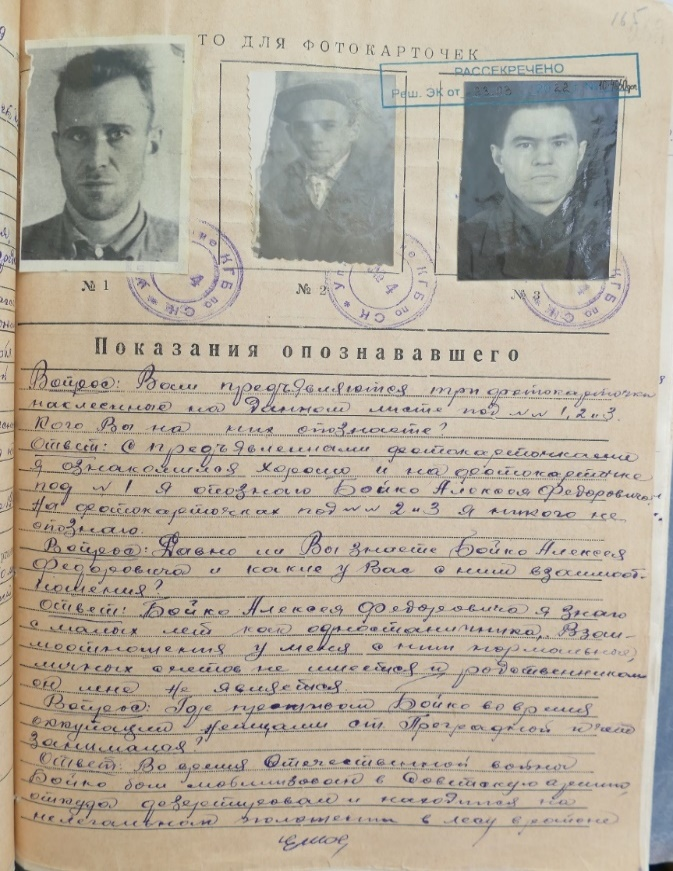 165
ТО ДЛЯ ФОТОКАРТОЧЕК
РАССЕКРЕЧЕНО
Реш. ЭК от 03.08 22
КГБ по СК 4
Управление КГБ по СК 4
КГБ по СК
№ 1
№ 2
№ 3
Показания опознававшего
Вопрос: Вам предъявляются три фотокарточки
наклеенные на данном листе под №№ 1, 2 и 3.
Кого Вы на них опознаете?
Ответ: С предъявленными фотокарточками
я ознакомился хорошо и на фотокарточке
под №1 я опознаю Бойко Алексея Федоровича.
На фотокарточках под №№ 2 и 3 я никого не
опознаю.
Вопрос: Давно ли Вы знаете Бойко Алексея
Федоровича и какие у Вас с ним взаимоот-
ношения?
Ответ: Бойко Алексея Федоровича я знаю
с малых лет как одностаничника. Взаи-
моотношения у меня с ним нормальные,
личных счетов не имеется и родственником
он мне не является.
Вопрос: Где проживал Бойко во время
оккупации немцами ст. Преградной и чем
занимался?
Ответ: Во время Отечественной войны
Бойко был мобилизован в Советскую армию,
откуда дезертировал и находился на
нелегальном положении в лесу в районе